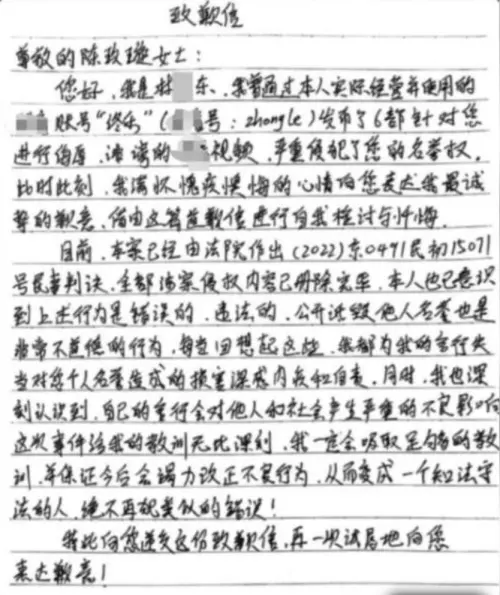 致歉信
尊敬的陈玫璇女士：
您好，我是林 东、我曾通过本人实际经营并使用的
账号“终乐”（ 号：zhongle）发布了6部针对您
进行侮辱、诽谤的 视频，严重侵犯了您的名誉权，
此时此刻，我满怀愧疚懊悔的心情向您表达我最诚
挚的歉意，借由这篇道歉信进行自我检讨与忏悔。
目前，本案已经由法院作出（2022）京0491民初15071
号民事判决，全部涉案侵权内容已删除完毕，本人也已意识
到上述行为是错误的、违法的，公开诋毁他人名誉也是
非常不道德的行为，每当回想起这些，我都为我的言行失
当对您个人名誉造成的损害深感内疚和自责，同时，我也深
刻认识到，自己的言行会对他人和社会产生严重的不良影响
这次事件给我的教训无比深刻，我一定会吸取足够的教
训，并保证今后会竭力改正不良行为，从而变成一个知法守
法的人，绝不再犯类似的错误！
特此向您递交这份致歉信，再一次诚恳地向您
表达歉意！